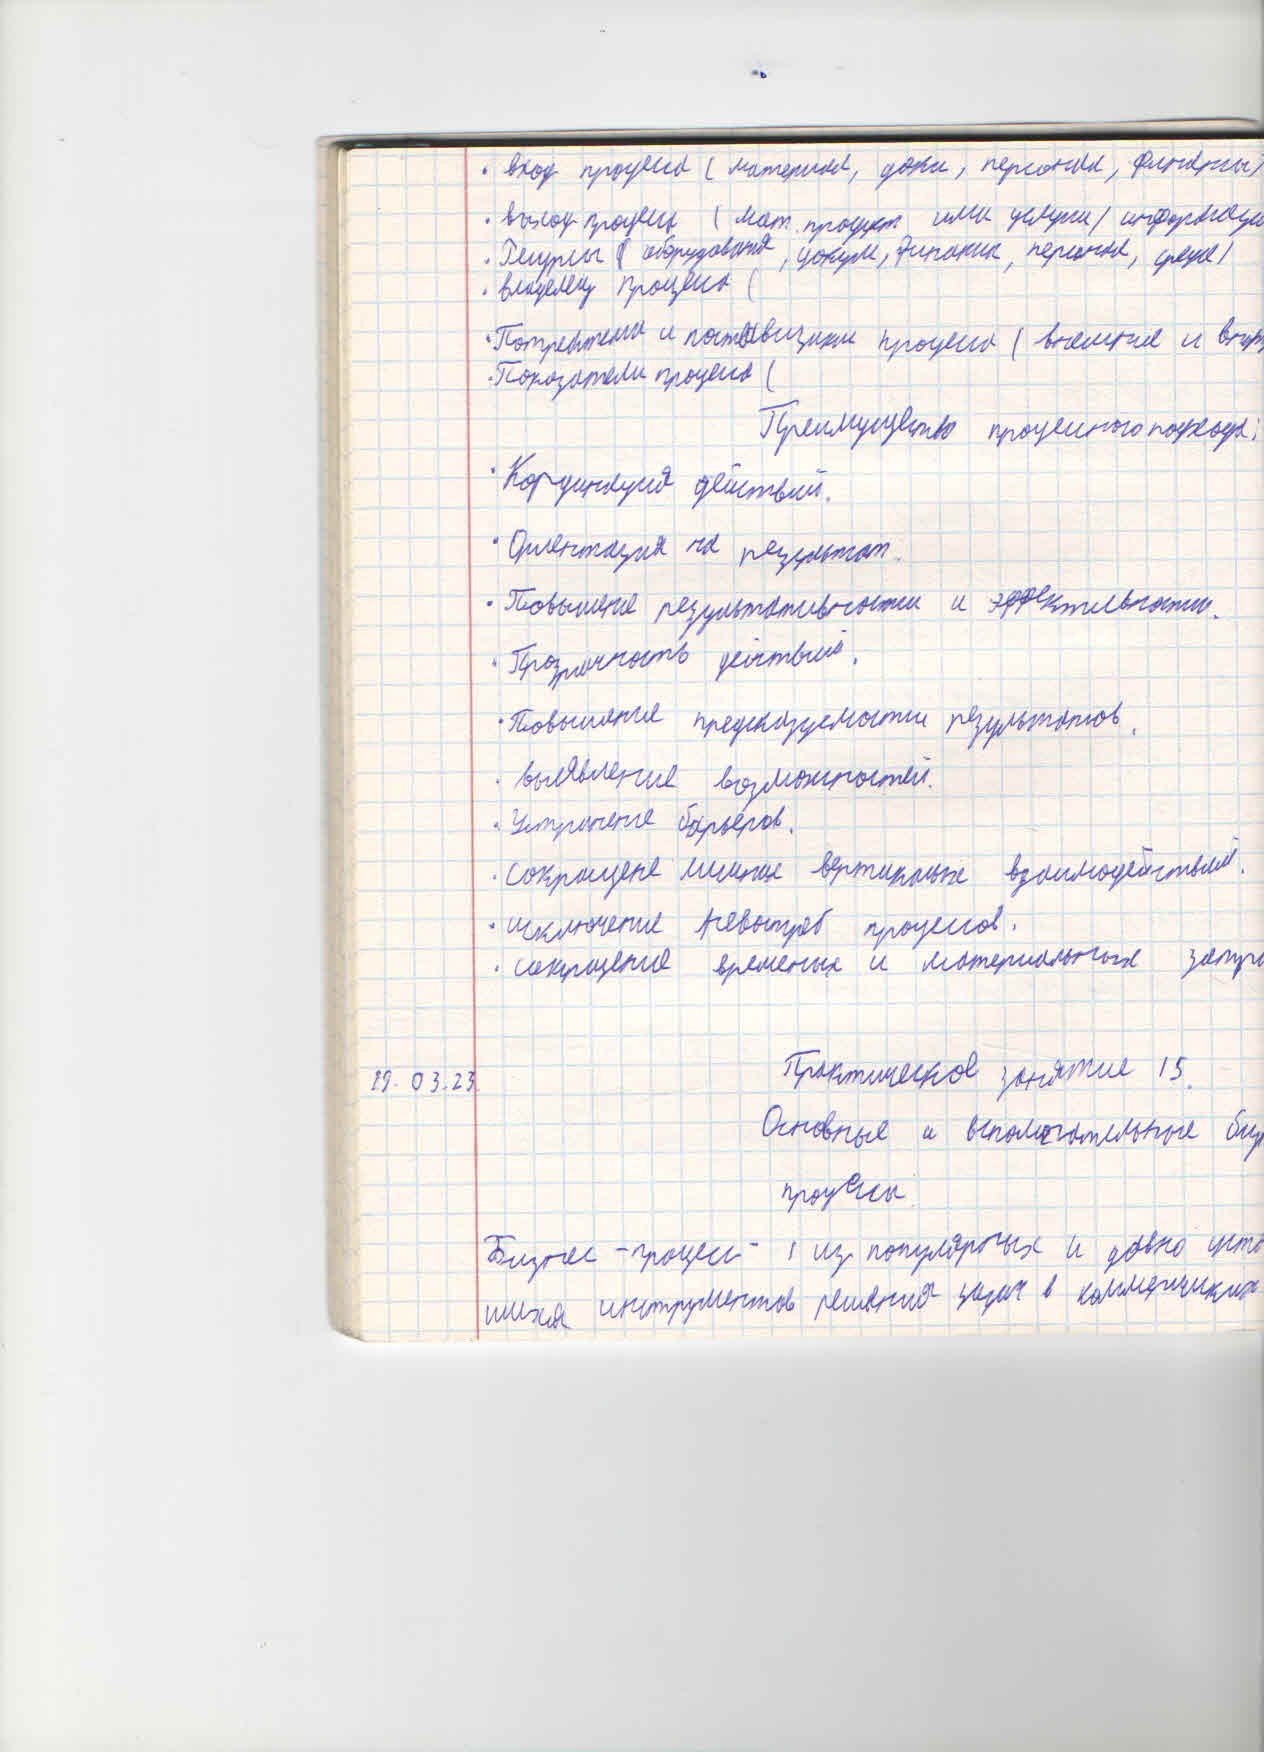 · вход процесса (материал, доки, персонал, финансы)
· выход процесса (мат. продукт или услуги / информация
· Ресурсы ( оборудования, докум, финансы, персонал, среда)
· владелец процесса (
· Потребители и поставщики процесса (внешние и внутр
· Показатели процесса (
Преимущество процессного подхода:
· Кординация действий.
· Ориентация на результат.
· Повышение результативности и эффективности.
· Прозрачность действий.
· Повышение предсказуемости результатов.
· выявление возможностей.
· Устранение барьеров.
· сокращене лишних вертикальных взаимодействий.
· исключение невостреб процессов.
· сокращение временых и материальных затра
19.03.23. Практическое занятие 15.
Основные и вспомогательные биз
процессы.
Бизнес-процесс - 1 из популярных и давно усто
шихся инструментов решения задач в коммерческих